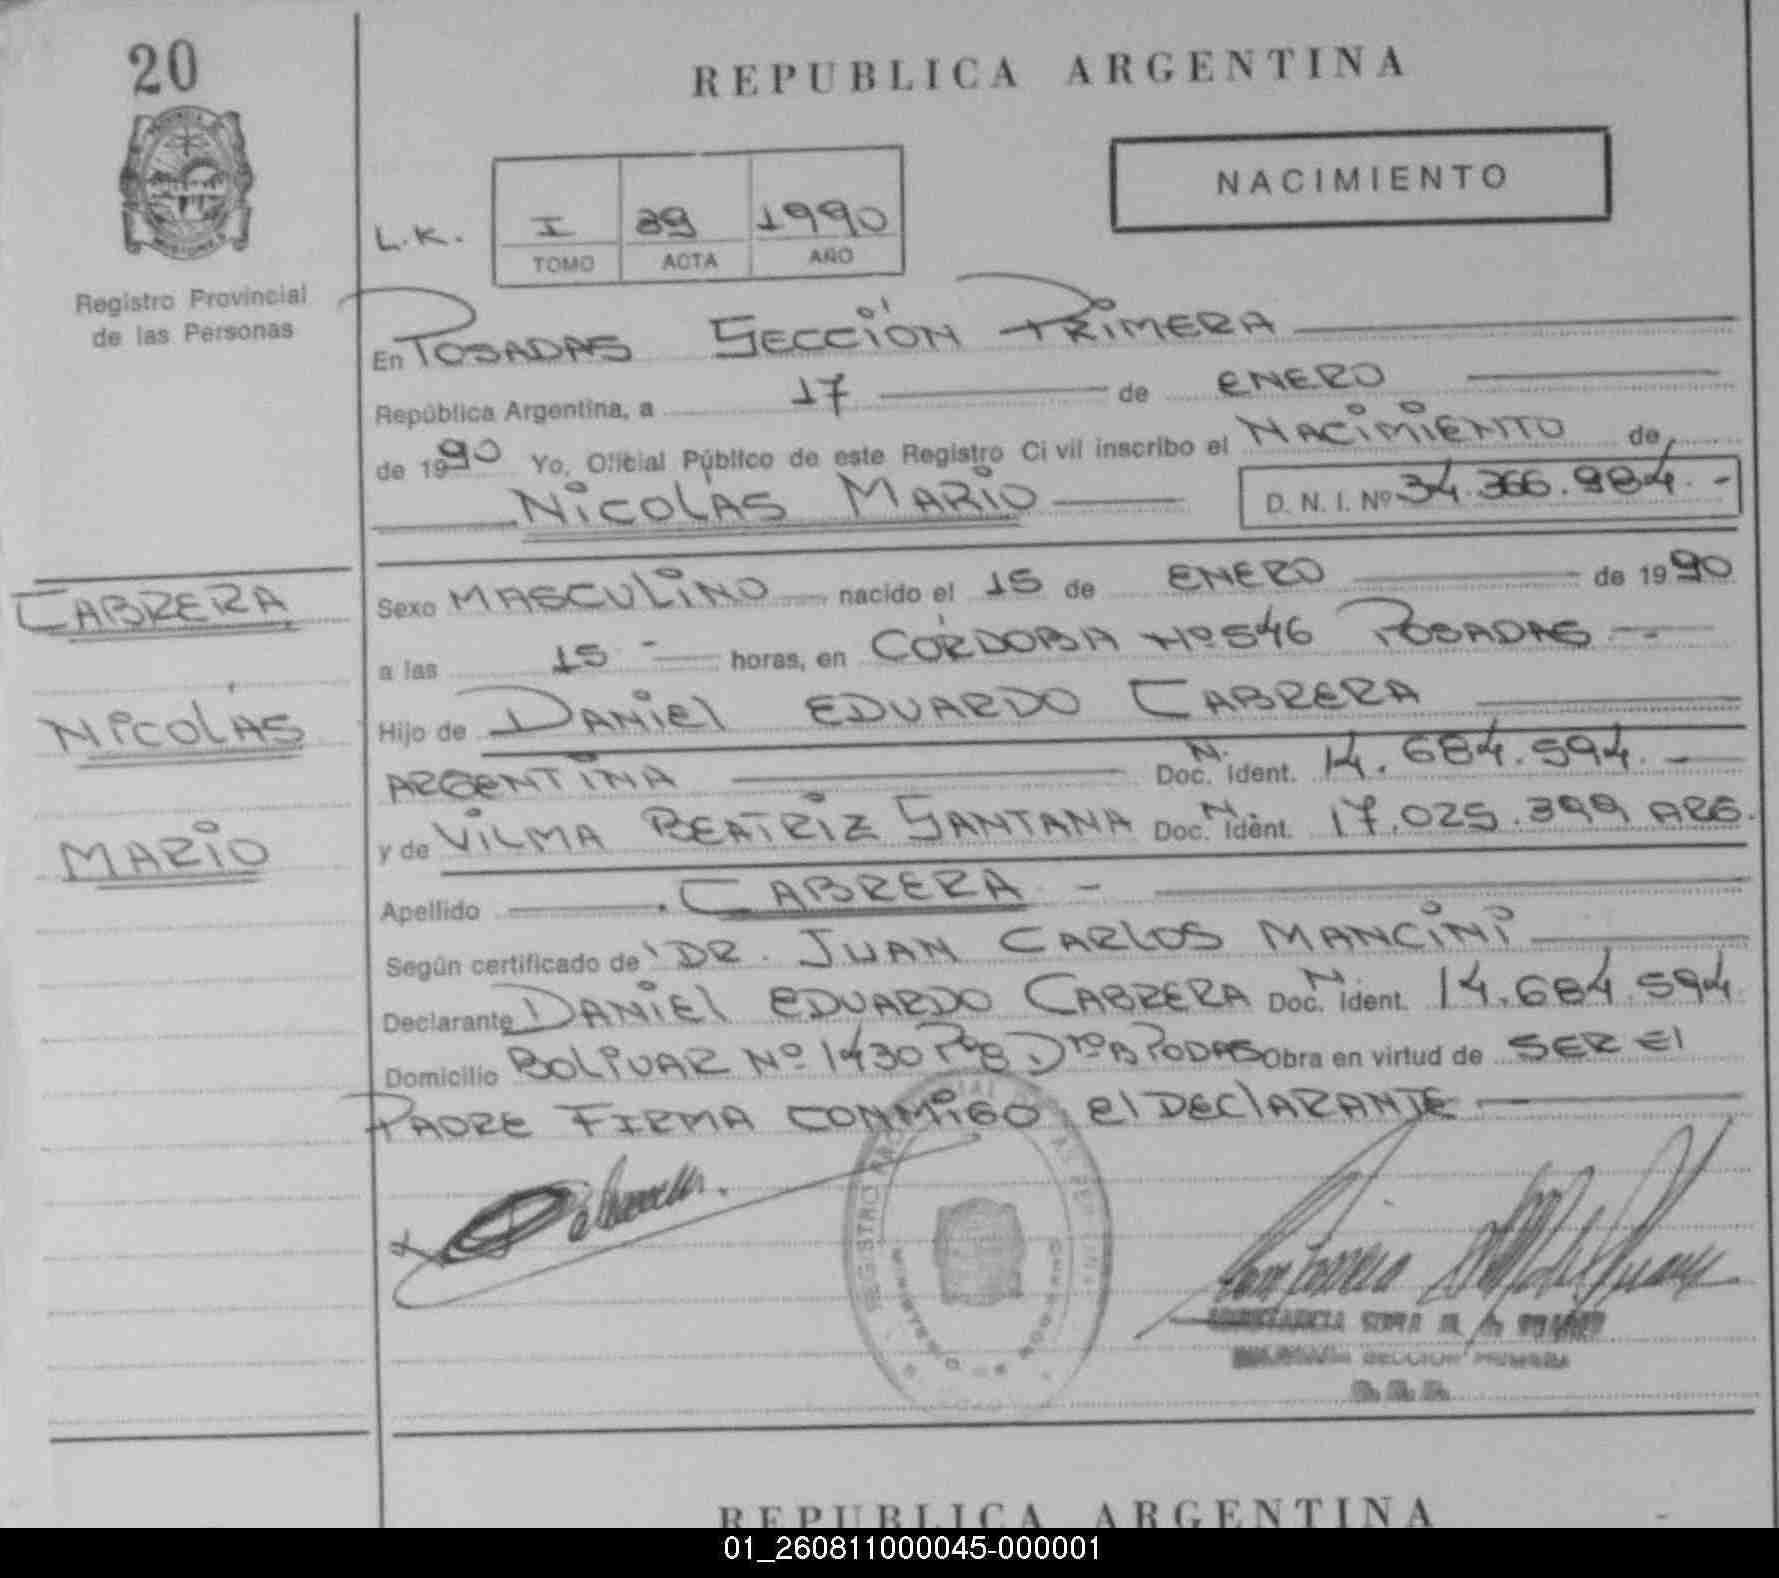 20
REPUBLICA ARGENTINA
NACIMIENTO
L.K. I 39 1990
TOMO ACTA AÑO
Registro Provincial
de las Personas
En POSADAS SECCIÓN PRIMERA
República Argentina, a 17 de ENERO
de 1990 Yo, Oficial Público de este Registro Civil inscribo el NACIMIENTO de
NICOLAS MARIO D. N. I. Nº 34.366.984.-
CABRERA
NICOLÁS
MARIO
Sexo MASCULINO nacido el 15 de ENERO de 1990
a las 15 - horas, en CÓRDOBA Nº 546 POSADAS
Hijo de DANIEL EDUARDO CABRERA
ARGENTINA N. Doc. Ident. 14.684.594.-
y de VILMA BEATRIZ SANTANA N. Doc. Ident. 17.025.399 ARG.
Apellido CABRERA -
Según certificado de DR. JUAN CARLOS MANCINI
Declarante DANIEL EDUARDO CABRERA N. Doc. Ident. 14.684.594
Domicilio BOLIVAR Nº 1430 Obra en virtud de SER El
PADRE FIRMA CONMIGO El DEClARANTE
REGISTRO
MINISTERIO DE GOBIERNO
SECCION PRIMERA
REPUBLICA ARGENTINA
01_260811000045-000001